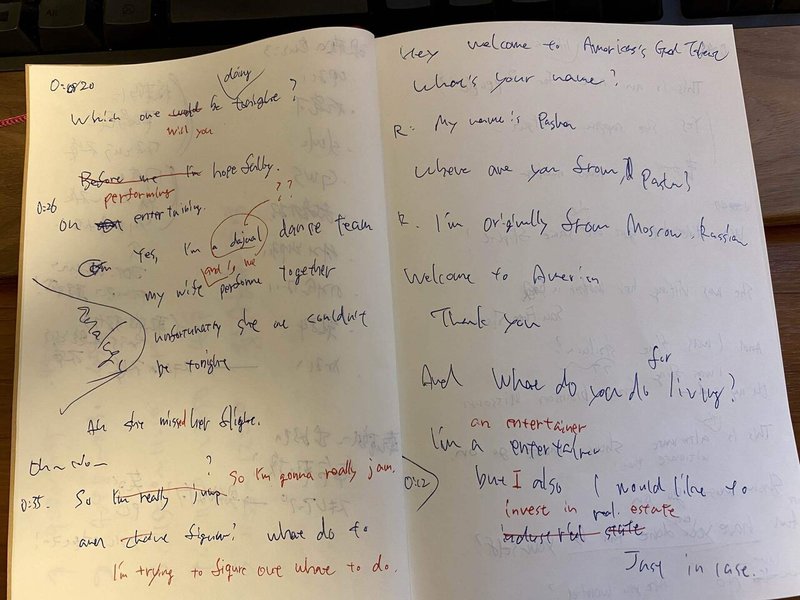 0:20
doing
Which one would be tonight?
will you
Before me I'm hopefully.
performing
0:26
on entertaining.
??
Yes, I'm a dance team
and is we
my wife performe together
unfortunatly she we couldn't
be tonight
Ah she missed her flight.
?
So I'm gonna really jam.
0:35. So I'm really jump
figure? what do to
I'm trying to figure out what to do.
Hey welcome to Americas's Got Talent
what's your name?
R: My name is Pasha
where are you from, Pasha?
R. I'm originally from Moscow, Russian
Welcome to American
Thank you
for
And what do you do living?
an entertainer
I'm a entertainer
0:12
but I also I would like to
invest in real estate
industrial state
Just in case.